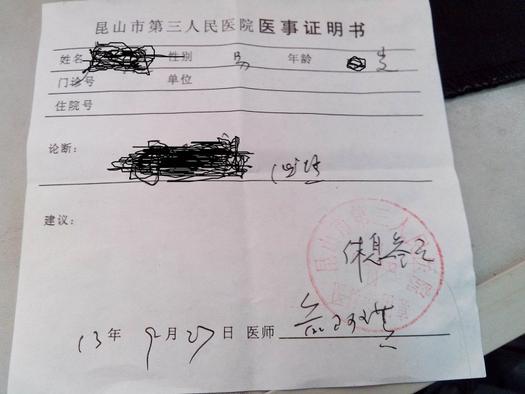 昆山市第三人民医院医事证明书
姓名 性别 男 年龄
门诊号 单位
住院号
论断：
建议：
昆山市第三人民医院
休息叁天
13年 9月27日 医师